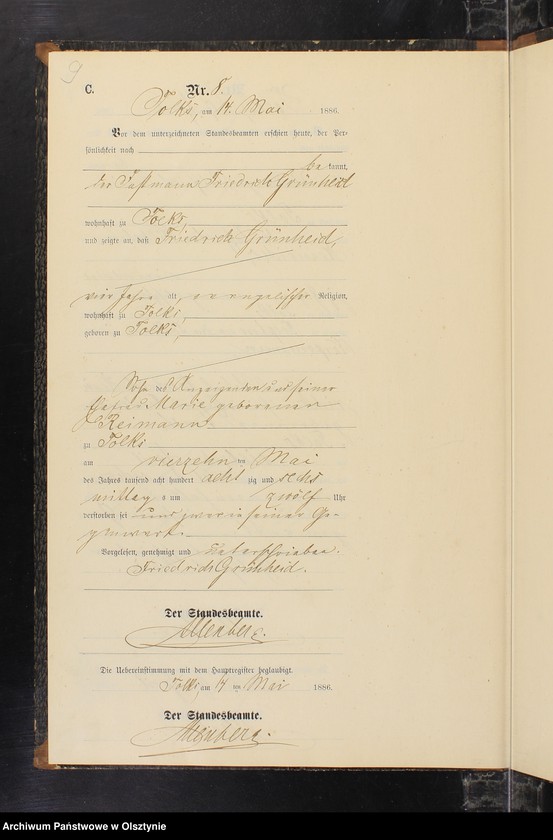 9
C. Nr. 8.
Tolks, am 14. Mai 1886.
Vor dem unterzeichneten Standesbeamten erschien heute, der Per-
sönlichkeit nach
be kannt,
der Instmann Friedrich Grünheid
wohnhaft zu Tolks,
und zeigte an, daß Friedrich Grünheid,
vier Jahre alt, evangelischer Religion,
wohnhaft zu Tolks,
geboren zu Tolks,
Sohn des Anzeigenden und seiner
Ehefrau Marie geborenen
Reimann
zu Tolks
am vierzehn ten Mai
des Jahres tausend acht hundert acht zig und sechs
mittag s um zwölf Uhr
verstorben sei und zwar in seiner Ge-
genwart.
Vorgelesen, genehmigt und unterschrieben.
Friedrich Grünheid.
Der Standesbeamte.
Die Uebereinstimmung mit dem Hauptregister beglaubigt.
Tolks, am 14 ten Mai 1886.
Der Standesbeamte.
Archiwum Państwowe w Olsztynie